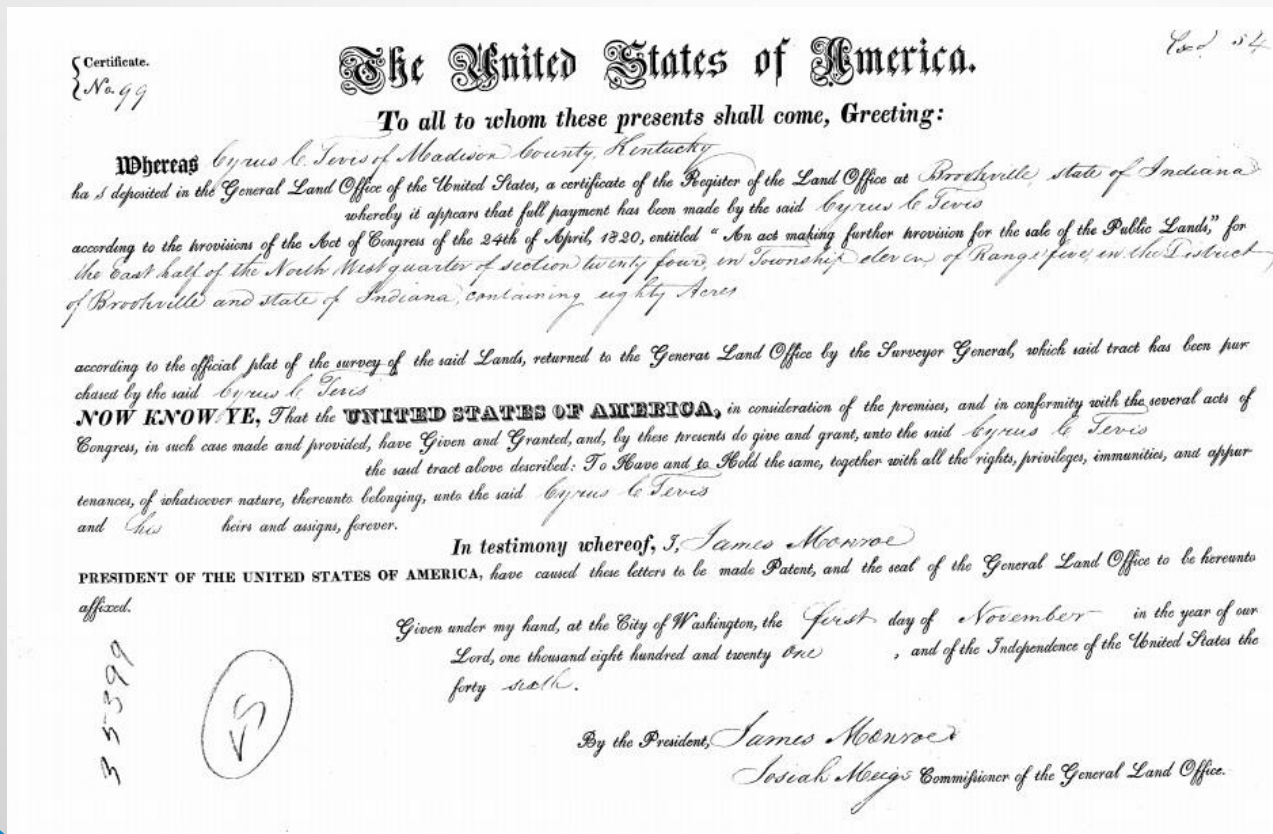 Certificate.
No. 99
The United States of America.
Exd. 54
To all to whom these presents shall come, Greeting:
Whereas Cyrus C. Tevis of Madison County, Kentucky
ha s deposited in the General Land Office of the United States, a certificate of the Register of the Land Office at Brookville, state of Indiana
whereby it appears that full payment has been made by the said Cyrus C Tevis
according to the provisions of the Act of Congress of the 24th of April, 1820, entitled "An act making further provision for the sale of the Public Lands," for
the East half of the North West quarter of section twenty four, in Township eleven, of Range five, in the District
of Brookville and state of Indiana, containing eighty Acres
according to the official plat of the survey of the said Lands, returned to the General Land Office by the Surveyor General, which said tract has been pur
chased by the said Cyrus C Tevis
NOW KNOW YE, That the UNITED STATES OF AMERICA, in consideration of the premises, and in conformity with the several acts of
Congress, in such case made and provided, have Given and Granted, and, by these presents do give and grant, unto the said Cyrus C Tevis
the said tract above described: To Have and to Hold the same, together with all the rights, privileges, immunities, and appur
tenances, of whatsoever nature, thereunto belonging, unto the said Cyrus C Tevis
and his heirs and assigns, forever.
In testimony whereof, I, James Monroe
PRESIDENT OF THE UNITED STATES OF AMERICA, have caused these letters to be made Patent, and the seal of the General Land Office to be hereunto
affixed.
Given under my hand, at the City of Washington, the first day of November in the year of our
Lord, one thousand eight hundred and twenty one, and of the Independence of the United States the
forty sixth.
By the President, James Monroe
Josiah Meigs Commissioner of the General Land Office.
35399
LS